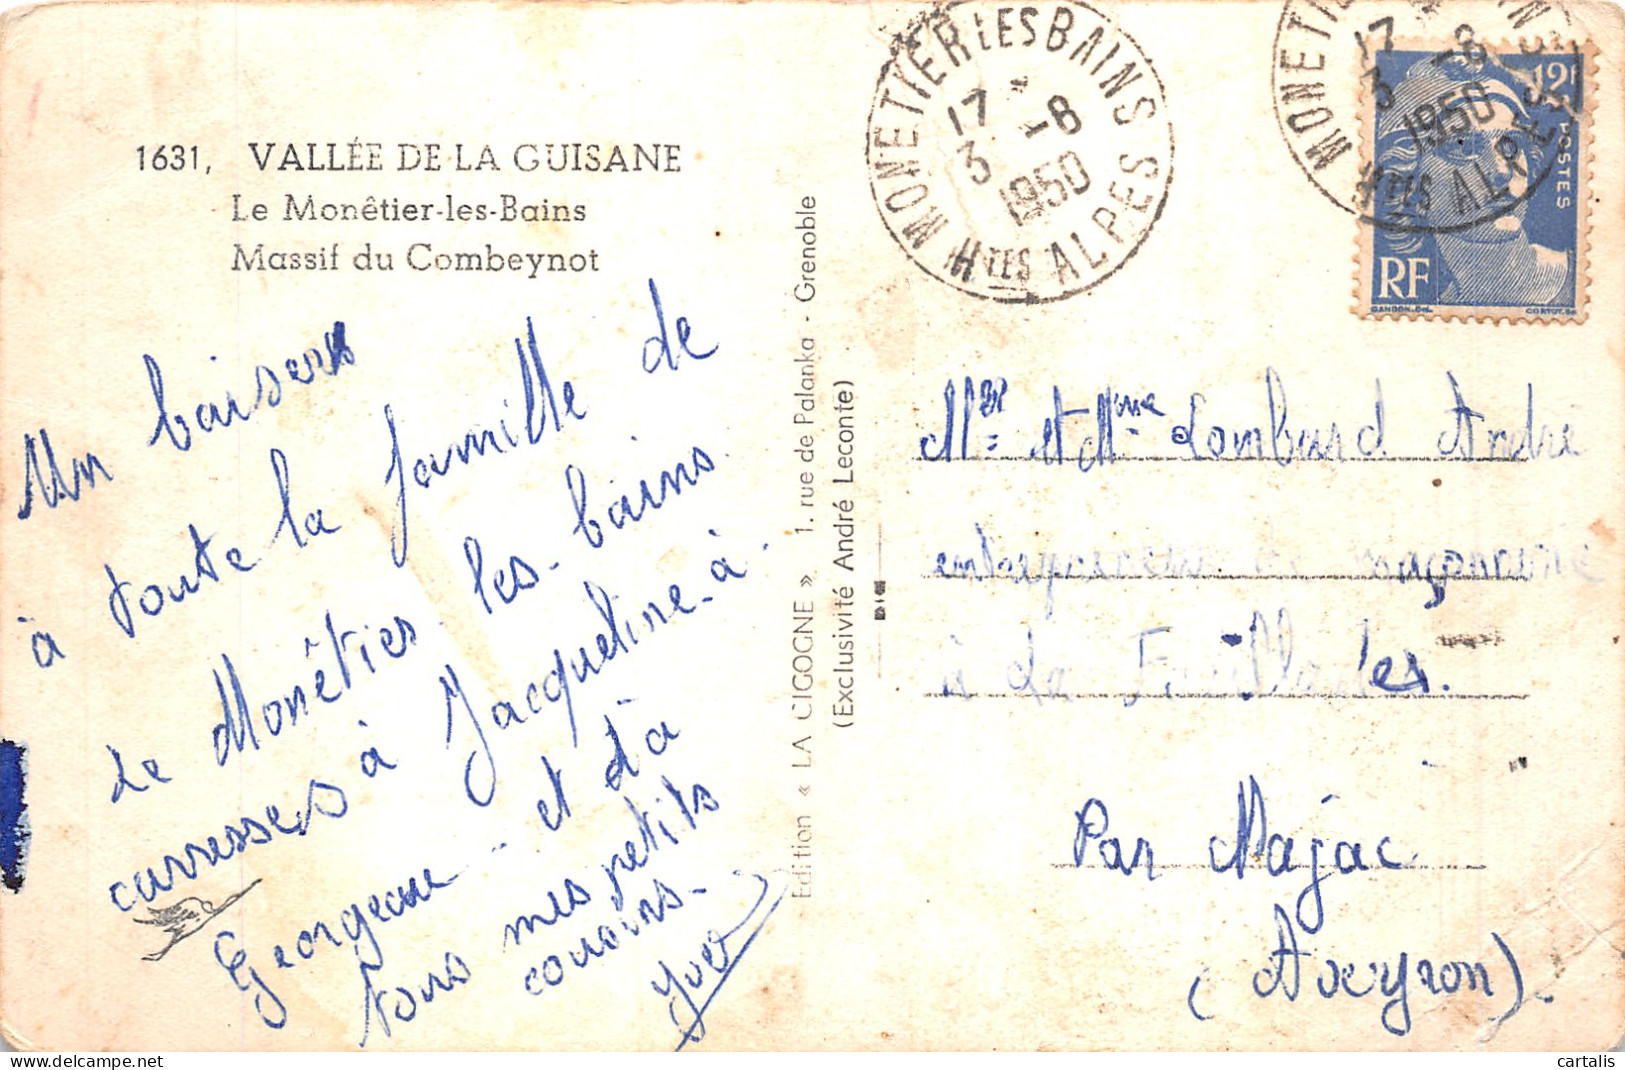 1631, VALLÉE DE LA GUISANE
Le Monêtier-les-Bains
Massif du Combeynot
Un baisers
à toute la famille de
de Monêtier-les-bains.
carresses à Jacqueline-à-
Georgeau - et d'à
tous mes petits
cousins-
Yves
Edition « LA CIGOGNE » 1. rue de Palanka - Grenoble
(Exclusivité André Leconte)
MONETIER LES BAINS
17 -8
3 1950
Htes ALPES
MONETIER
17 -8
3 1950
Htes ALPES
12f
POSTES
RF
GANDON.Del.
Mer et Mme Lombard André
à La
Par Najac
(Aveyron).
cartalis